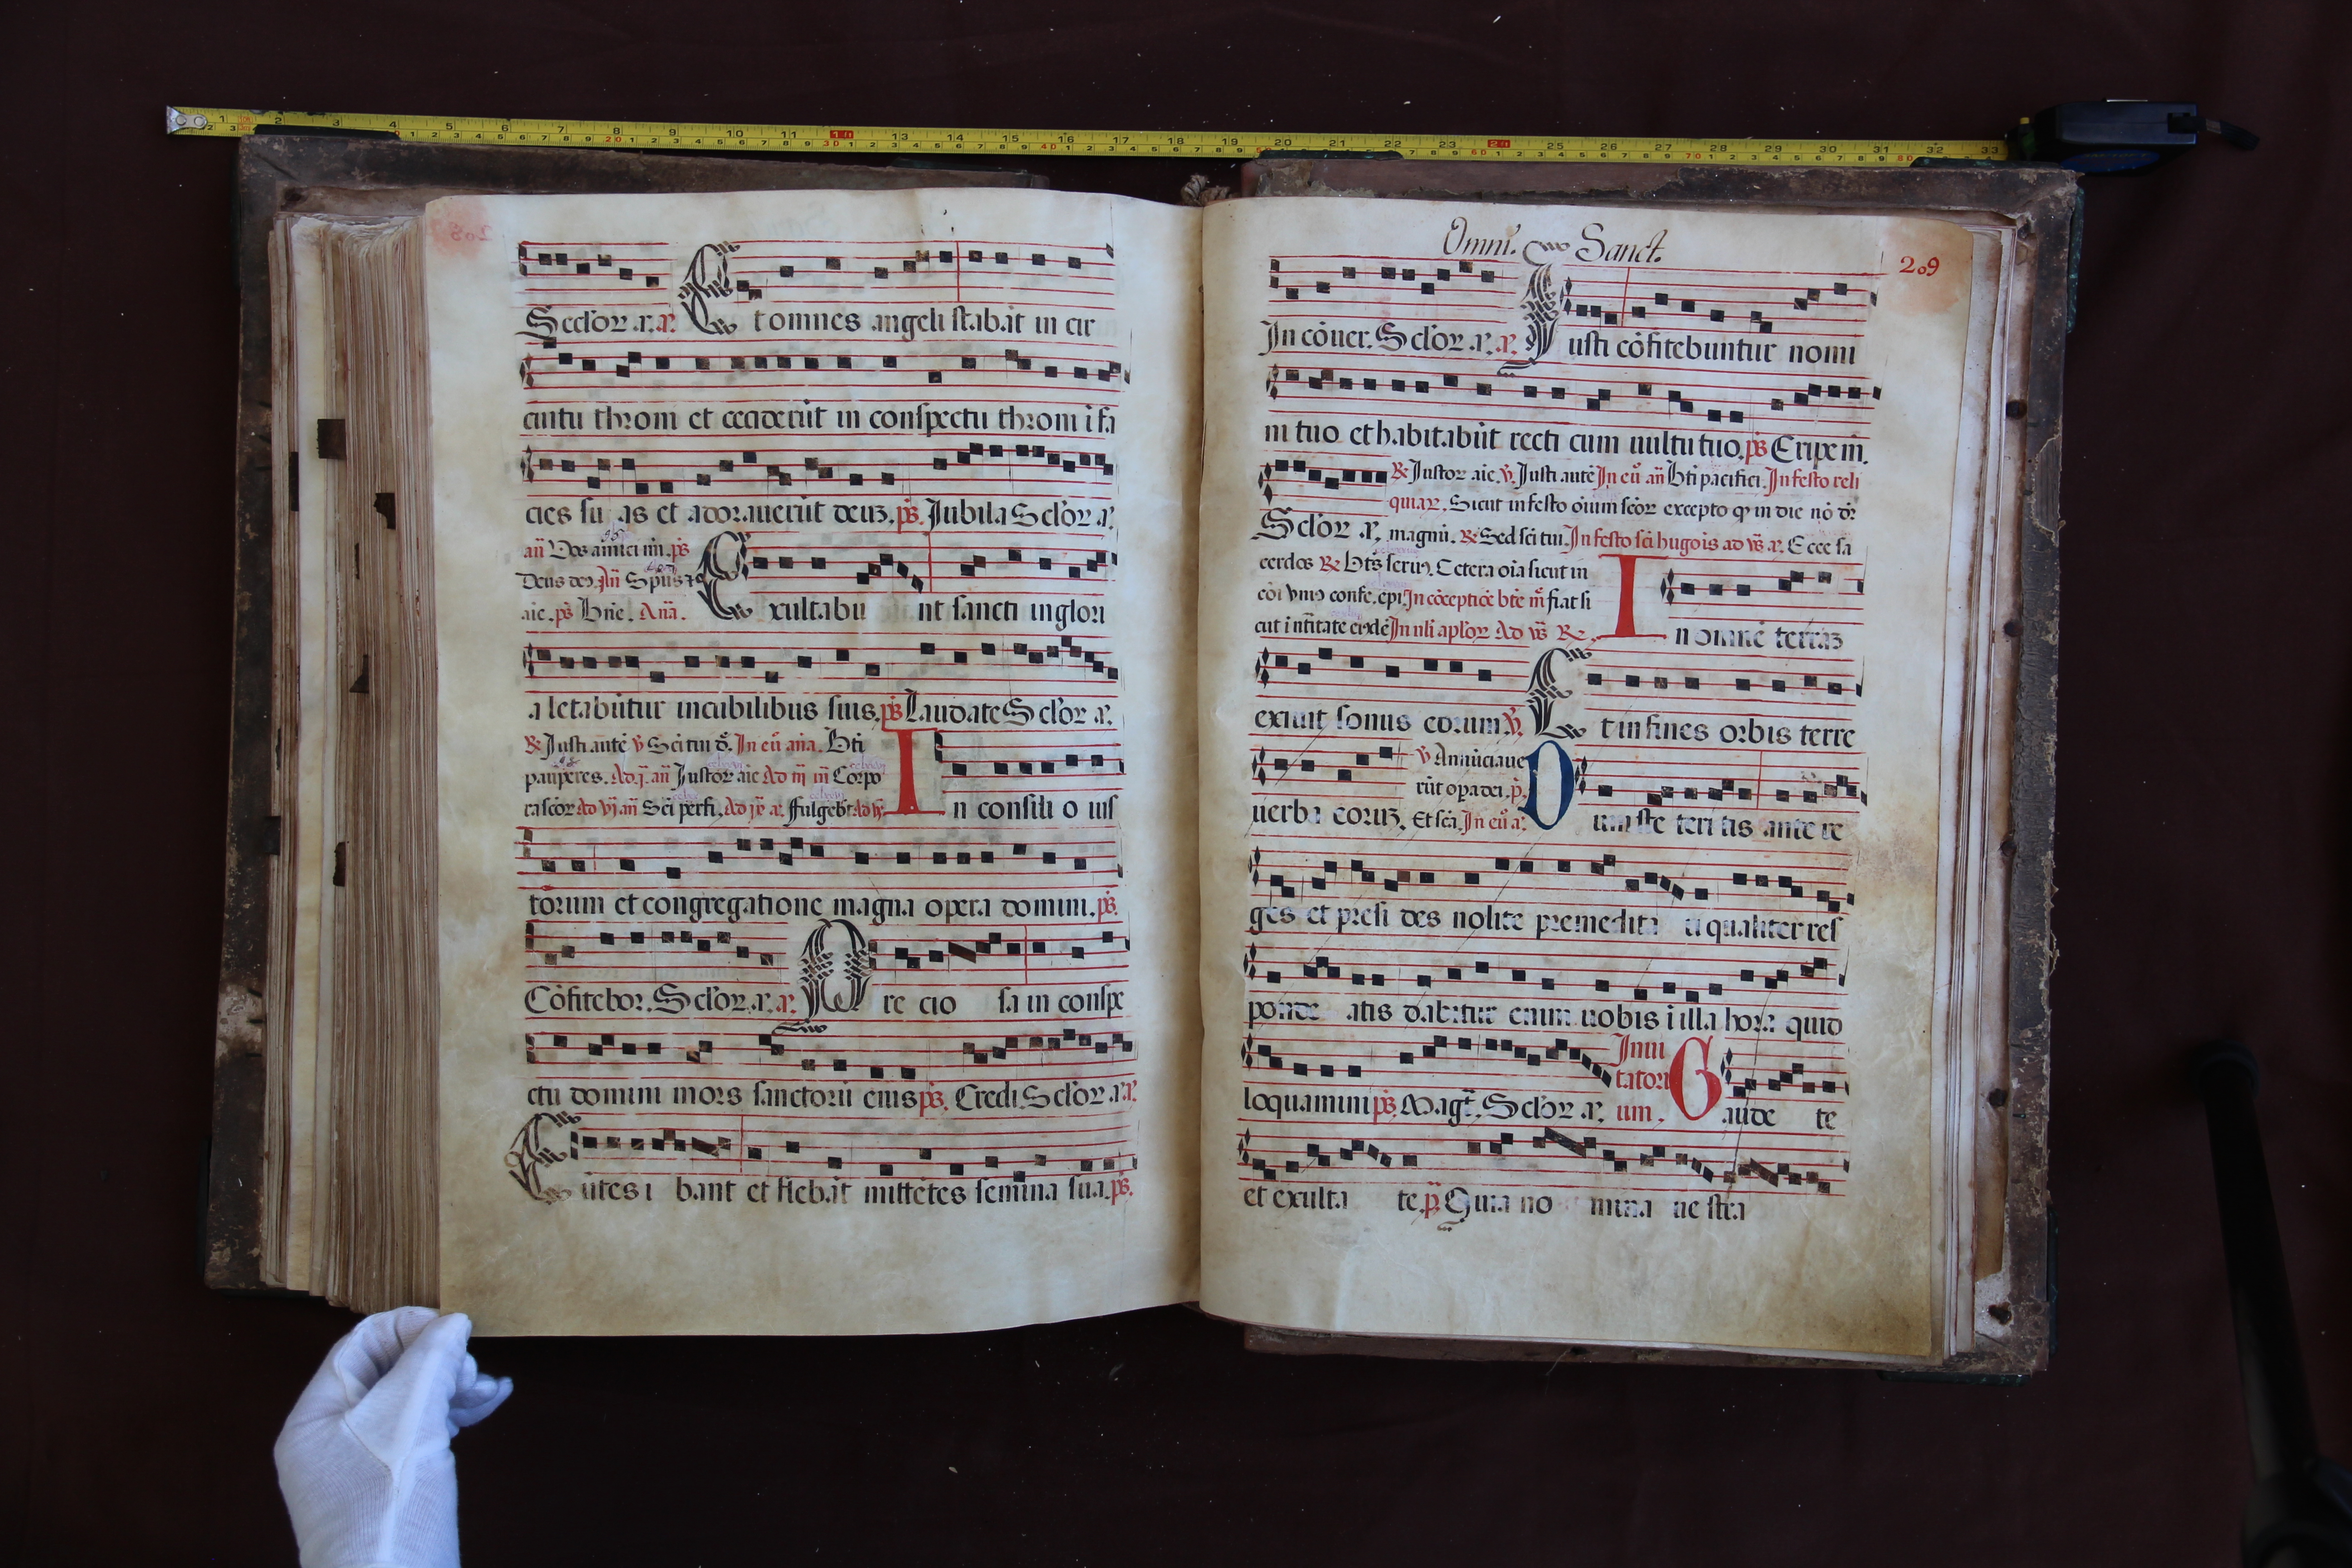 Sclor. a. a. Et omnes angeli stabāt in cir
cuitu throni et ceciderūt in conspectu throni ī fa
cies su as et adorauerūt deuz. ps. Iubila Sclor a.
an Vos amici mi. ps
Deus deo. An Spūs z
aie. ps Bn̄e. Ana. Exultabu nt sancti in glori
a letabūtur in cubilibus suis. ps Laudate Sclor a.
R Iusti autē V Sc̄i tui d. In eu ana. Bti
pauperes. Ad j. an Iustor aīe Ad iij an Corpo
ra scor Ad vj an Sc̄i perfi. Ad jx a. Fulgebt Ad v In consili o ius
torum et congregatione magna opera domini. ps.
Cōfitebor. Sclor. a. a. Pre cio sa in conspe
ctu domini mors sanctorū eius ps. Credi. Sclor. a. a.
Eūtes i bant et flebāt mittētes semina sua. ps.
Omni. Sanct.
209
In cōuer. Sclor. a. a. Iusti cōfitebuntur nomi
ni tuo et habitabūt recti cum uultu tuo. ps Eripe m̄.
R Iustor aīe. V. Iusti autē In eu an Bti pacifici. In festo reli
quiar. Sicut in festo oīum scor excepto q in die nō dr
Sclor a. magni. R Sed sci tui. In festo sci hugois ad vs a. Ecce sa
cerdos R Bts seruus. Cetera oīa sicut in
cōi vnius confe. epi. In cōceptiōe bte m fiat si
cut ī nītitate eiusdē In nli aplor Ad vs R. In omnē terraz
exiuit sonus eorum V Et in fines orbis terre
V Annūciaue
rūt opa dei. p.
uerba eoruz. Et scā. In eu a. Dum ste teri tis ante re
ges et presi des nolite premedita ri qualiter res
ponde atis dabitur enim uobis ī illa hora quid
loquamini ps. Magt. Sclor a. Inui
tatori
um. Gaude te
et exulta te. p Quia no mina ue stra